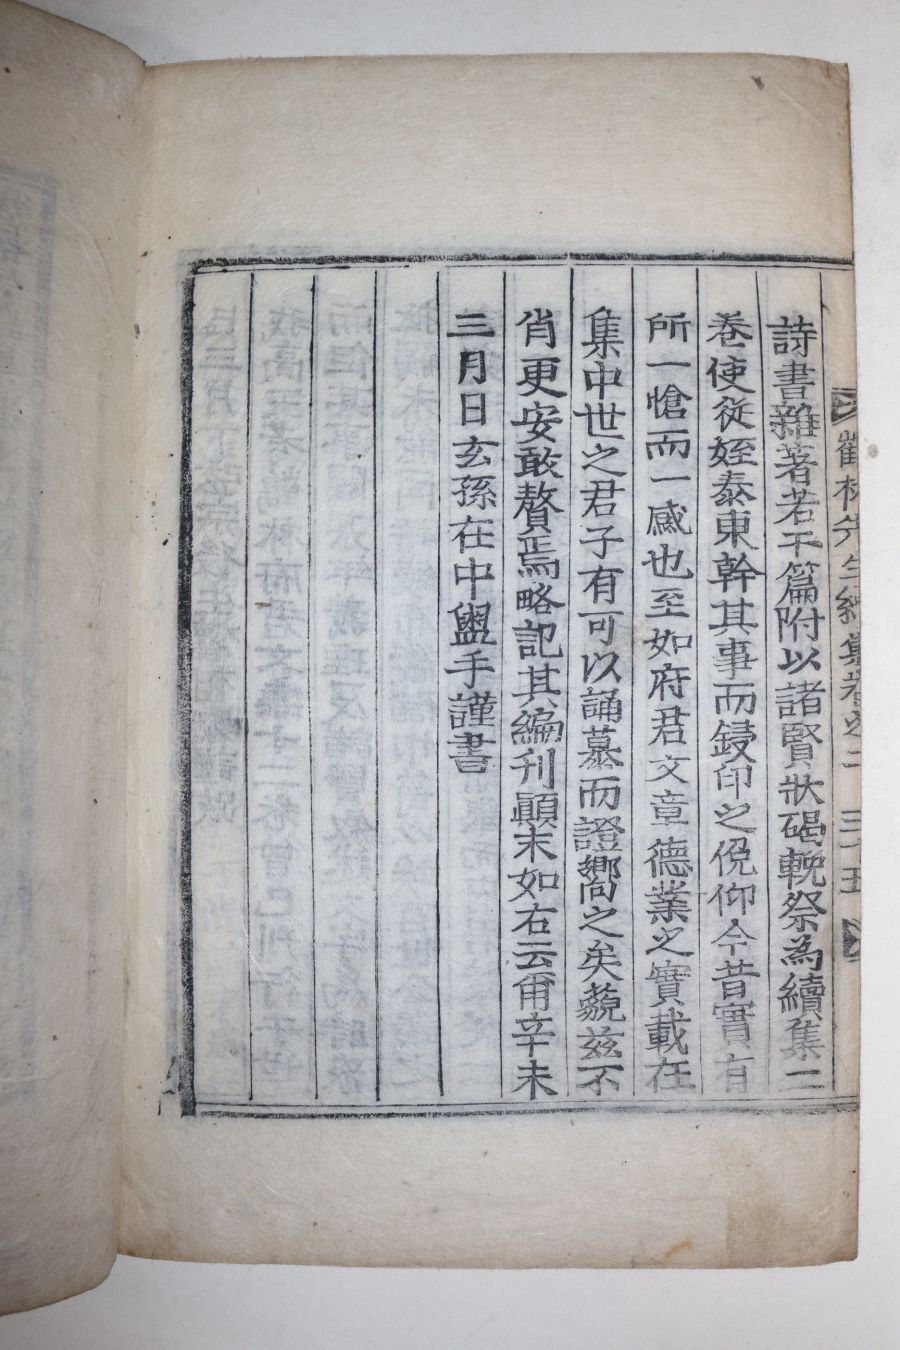 詩書雜著若干篇附以諸賢狀碣輓祭為續集二
卷使從姪泰東幹其事而鋟印之俛仰今昔實有
所一愴而一感也至如府君文章德業之實載在
集中世之君子有可以誦慕而證嚮之矣藐玆不
肖更安敢贅焉略記其編刊顚末如右云爾辛未
三月日玄孫在中盥手謹書
先生續集卷之二 三十五